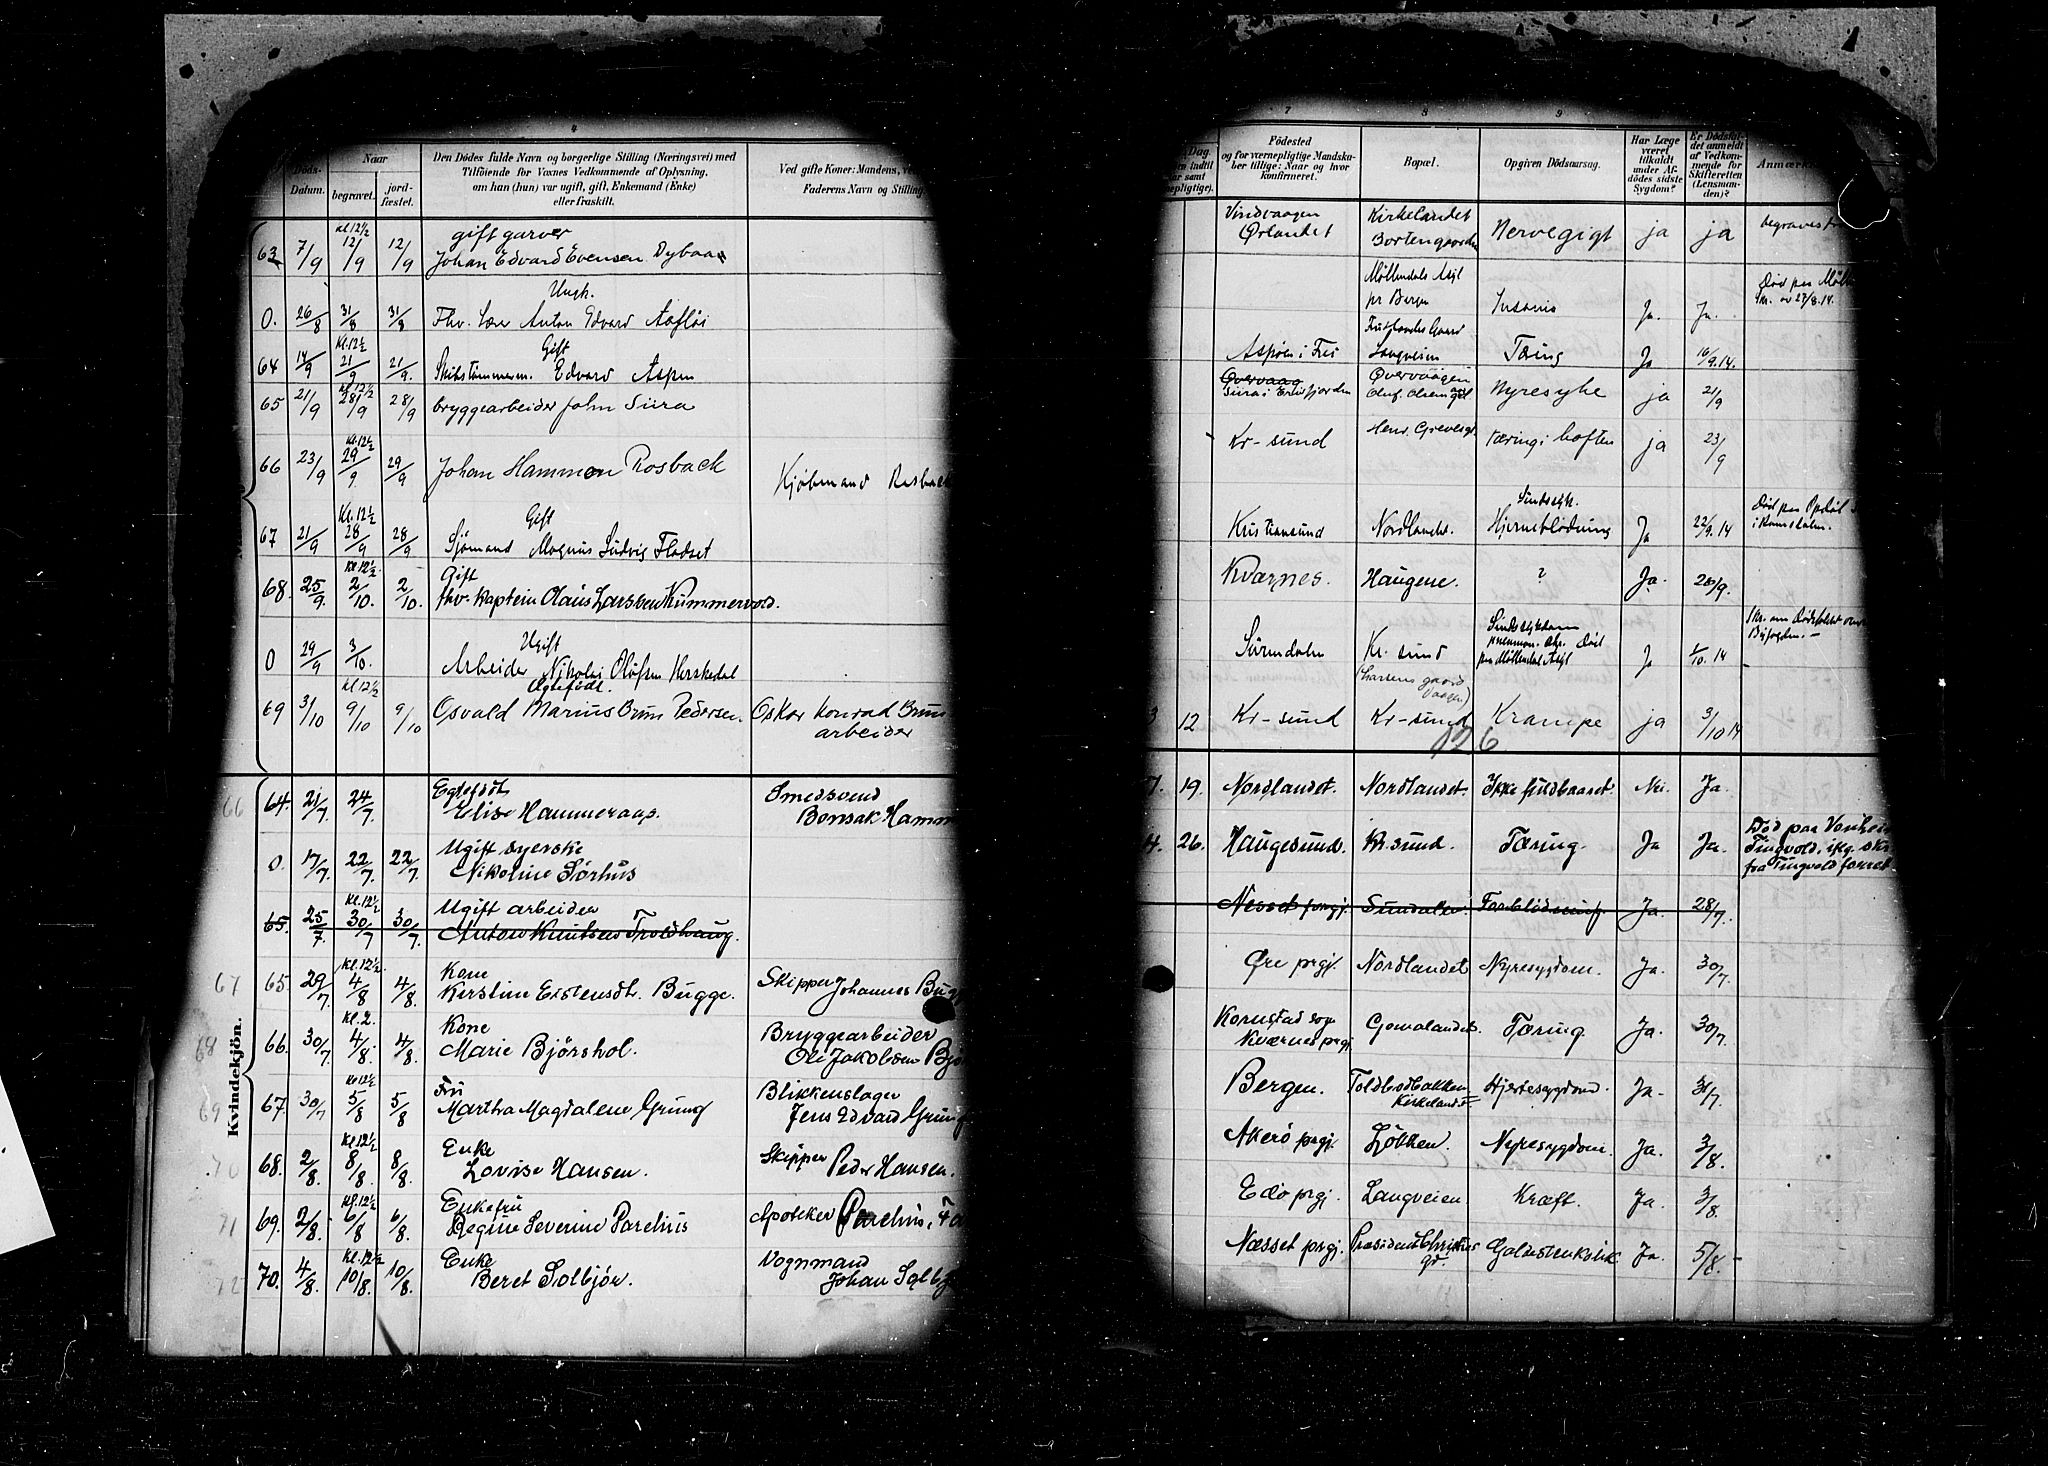 4
Døds-
Datum.
Naar
begravet.
jord-
fæstet.
Den Dødes fulde Navn og borgerlige Stilling (Næringsvei) med
Tilføiende for Voxnes Vedkommende af Oplysning,
om han (hun) var ugift, gift, Enkemand (Enke)
eller fraskilt.
Ved gifte Koner: Mandens,
Faderens Navn og Stilling
gift garver
63 7/9 Kl 12½ 12/9 12/9 Johan Edvard Evensen Dybaa
Ungk.
0. 26/8 31/8 31/8 Fhv. Anton Edvard
Gift
64 14/9 Kl. 12½ 21/9 21/9. Edvard Aspen
65 21/9 Kl 12½ 28/9 28/9 bryggearbeider John Süra
66 23/9 Kl. 12½ 29/9 29/9 Johan Hammon Rosback Kjøbmand Rosback
Gift
67 21/9 Kl. 12½ 28/9 28/9 Sjømand Magnus Ludvig Fladset
Gift
68. 25/9. Kl. 12½ 2/10. 2/10. fhv. Kaptein Olaus Larssen Kummervold.
Ugift
0 29/9 3/10. Arbeider Nikolai Olufsen
Ægtefødt.
69 3/10 Kl 12½ 9/10 9/10 Osvald Marius Brun Pedersen. Oskar Konrad Brun
arbeider
Kvindekjön.
66 64. 21/7. 24/7. Egtefødt Smedsvend
Elise Hammeraas. Bonsak Hamm
Ugift syerske
0. 17/7. 22/7. 22/7. Nikoline Sørhus
Ugift arbeider
65. 25/7. Kl. 12½ 30/7 30/7. Anton Knutsen Troldhaug.
Kone
67 65. 29/7. Kl. 12½ 4/8 4/8. Kirstine Eistensdt. Bugge. Skipper Johannes Bugg
Kone Bryggearbeider
68 66. 30/7. Kl. 2. 4/8. 4/8. Marie Bjørshol. Ole Jakobsen Bjø
Fru Blikkenslager
69 67. 30/7 Kl 12½ 5/8 5/8 Martha Magdalene Grung Jens Edvard Grung
Enke Skipper
70 68. 2/8. Kl. 12½ 8/8. 8/8. Lovise Hansen. Peder Hansen.
Enkefru
71 69. 2/8. Kl. 12½ 6/8 6/8. Regine Severine Parelius Apotheker Parelius,
Enke Vognmand
72 70. 4/8. Kl. 12½ 10/8. 10/8. Beret Solbjør. Johan Solbj
7
8
9
Dag.
indtil
samt
nepligtige).
Fødested
og for værnepligtige Mandska-
ber tillige: Naar og hvor
konfirmeret.
Bopæl.
Opgiven Dödsaarsag.
Har Læge
været
tilkaldt
under Af-
dødes sidste
Sygdom?
Er Dödsfal-
det anmeldt
af Vedkom-
mende for
Skifteretten
(Lensman-
den)?
Anmærk
Vindvaagen Kirkelandet
Ørlandet Bortengaarden Nervegigt ja ja begraves fr
Møllendals Asyl Død paa Mölle
pr Bergen Insania Ja. Ja. Skr. av 27/8.14.
Aspøen i Frei Langveien Tæring Ja 16/9.14.
Overvaag Overvaagen
Süra i Eresfjorden Nyresyke ja 21/9
Kr-sund Henr. Grevesgt. tæring i hoften ja 23/9
Sindssyk.
Kristiansund Nordlandet. Hjerneblødning Ja 22/9.14
Død paa Opdøl
i Romsdalen.
Kværnes. Haugene. ? Ja. 26/9.
Sindssykdom
pneumon. chr. død
Surendalen Kr. sund paa Møllendal Asyl Ja 1/10.14
Skr. om dødsfaldet
Byfogden. —
(Larsens gaard
Vaagen)
3 12 Kr-sund Kr-sund Krampe ja 3/10 14
126
7. 19. Nordlandet. Nordlandet. Ikke fuldbaaret. Nei. Ja.
4. 26. Haugesund. Kr.sund. Tæring. Ja Ja.
Død paa Vonheim
Tingvold, ikg. skr.
fra Tingvold
Nesset prgj. Sundalen. Forblödning. Ja. 28/7.
Øre prgj. Nordlandet Nyresygdom. Ja. 30/7.
Kornstad sogn
Kværnes prgj. Gomalandet. Tæring. Ja. 30/7.
Bergen. Toldbodbakken. Hjertesygdom. Ja. 31/7.
Kirkelandet
Akerö prgj. Løkken. Nyresygdom. Ja. 3/8.
Edö prgj. Langveien Kræft. Ja. 3/8.
Næsset prgj. Præsident Christies
gt. Galdestenkolik. Ja. 5/8.